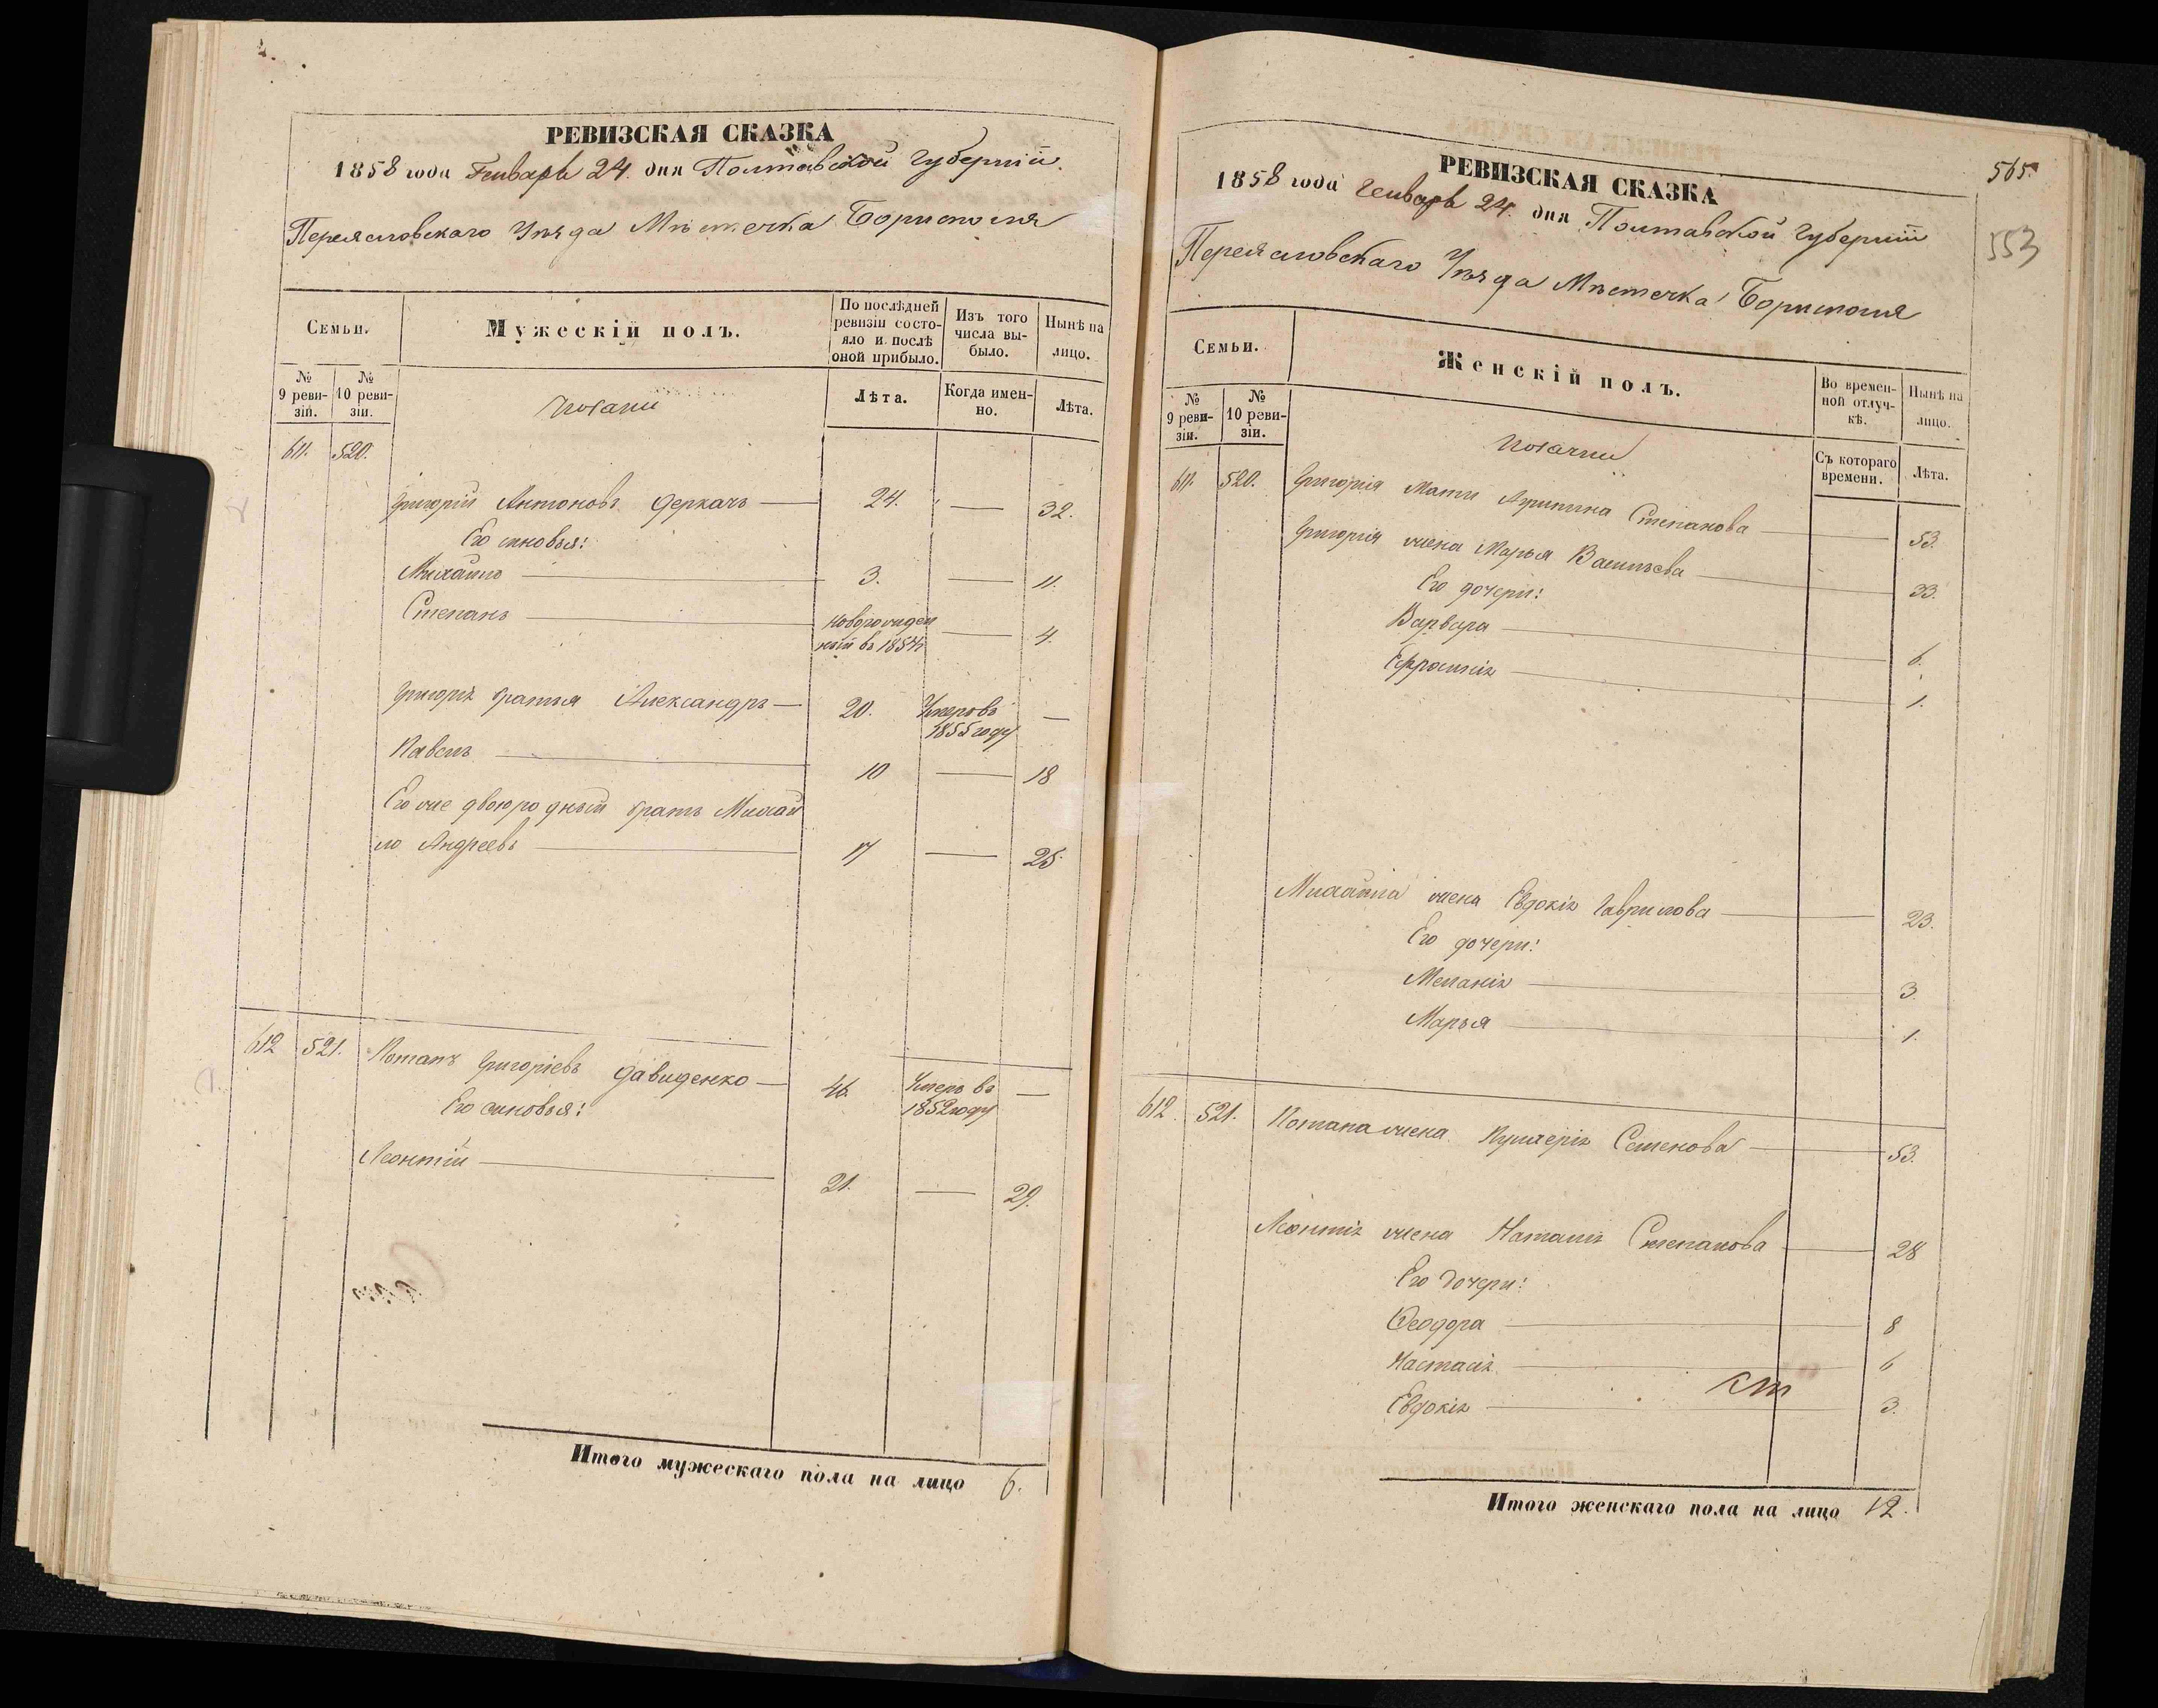 РЕВИЗСКАЯ СКАЗКА
1858 года Генваря 24. дня Полтавской Губернии
Переясловскаго Уѣзда Мѣстечка Борисполя
Семьи.
Мужескій полъ.
По послѣдней ревизіи состояло и послѣ оной прибыло.
Изъ того числа выбыло.
Нынѣ на лицо.
№ 9 ревизіи.
№ 10 ревизіи.
Козаки
Лѣта.
Когда именно.
Лѣта.
611. 520.
Григорій Антоновъ Деркачъ — 24. — 32.
Его сыновья:
Михайло — 3. — 11.
Степанъ — новорожден
ный въ 1854 — 4.
Григорія братья Александръ — 20. Умеръ въ
1855 году —
Павелъ — 10 — 18
Его же двоюродный братъ Михай
ло Андреевъ — 17 — 25
612 521. Потапъ Григоріевъ Давиденко — 46. Умеръ въ
1852 году —
Его сыновья:
Леонтій — 21. — 29.
Итого мужескаго пола на лицо 6.
565
553
РЕВИЗСКАЯ СКАЗКА
1858 года Генваря 24. дня Полтавской Губернии
Переясловскаго Уѣзда Мѣстечка Борисполя
Семьи.
Женскій полъ.
Во временной отлучкѣ.
Нынѣ на лицо.
№ 9 ревизіи.
№ 10 ревизіи.
Козачки
Съ котораго времени.
Лѣта.
611. 520. Григорія мати Агрипина Степанова — 53.
Григорія жена Марья Васильева — 33.
Его дочери:
Варвара — 6.
Ефросинія — 1.
Михайла жена Евдокія Гаврилова — 23.
Его дочери:
Меланія — 3
Марья — 1.
612. 521. Потапа жена Пульхерія Семенова — 53.
Леонтія жена Наталія Степанова — 28
Его дочери:
Феодора — 8
Настасія — 6
Евдокія — 3.
Итого женскаго пола на лицо 12.